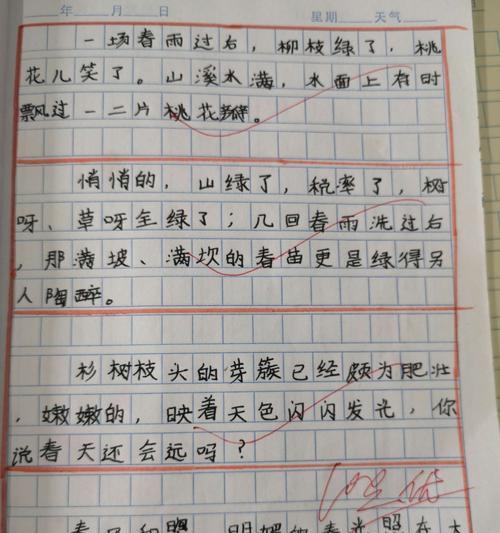 年 月 日 星期 天气
一场春雨过右，柳枝绿了，桃
花儿笑了。山溪水满，水面上有时
飘过一二片桃花瓣。
悄悄的，山绿了，税率了，树
呀、草呀全绿了；几回春雨洗过右
，那满坡、满坎的春苗更是绿得另
人陶醉。
杉树枝头的芽簇已经颇为肥壮
，嫩嫩的，映着天色闪闪发光，你
说春天还会远吗？
优